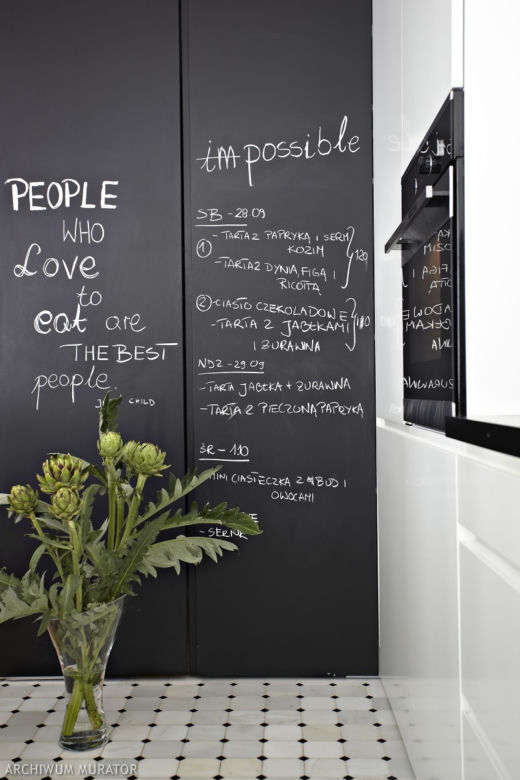 PEOPLE
WHO
Love
to
eat are
THE BEST
people.
CHILD
impossible
SB - 28.09
1
- TARTA Z PAPRYKĄ I SEREM
KOZIM
- TARTA Z DYNIĄ, FIGĄ I
RICOTTĄ
2 - CIASTO CZEKOLADOWE
- TARTA Z JABŁKAMI
I ŻURAWINĄ
NDZ - 29.09
- TARTA JABŁKA + ŻURAWINA
- TARTA Z PIECZONĄ PAPRYKĄ
ŚR - 1.10
MINI CIASTECZKA Z BUD I
OWOCAMI
- SERNIK
ARCHIWUM MURATOR